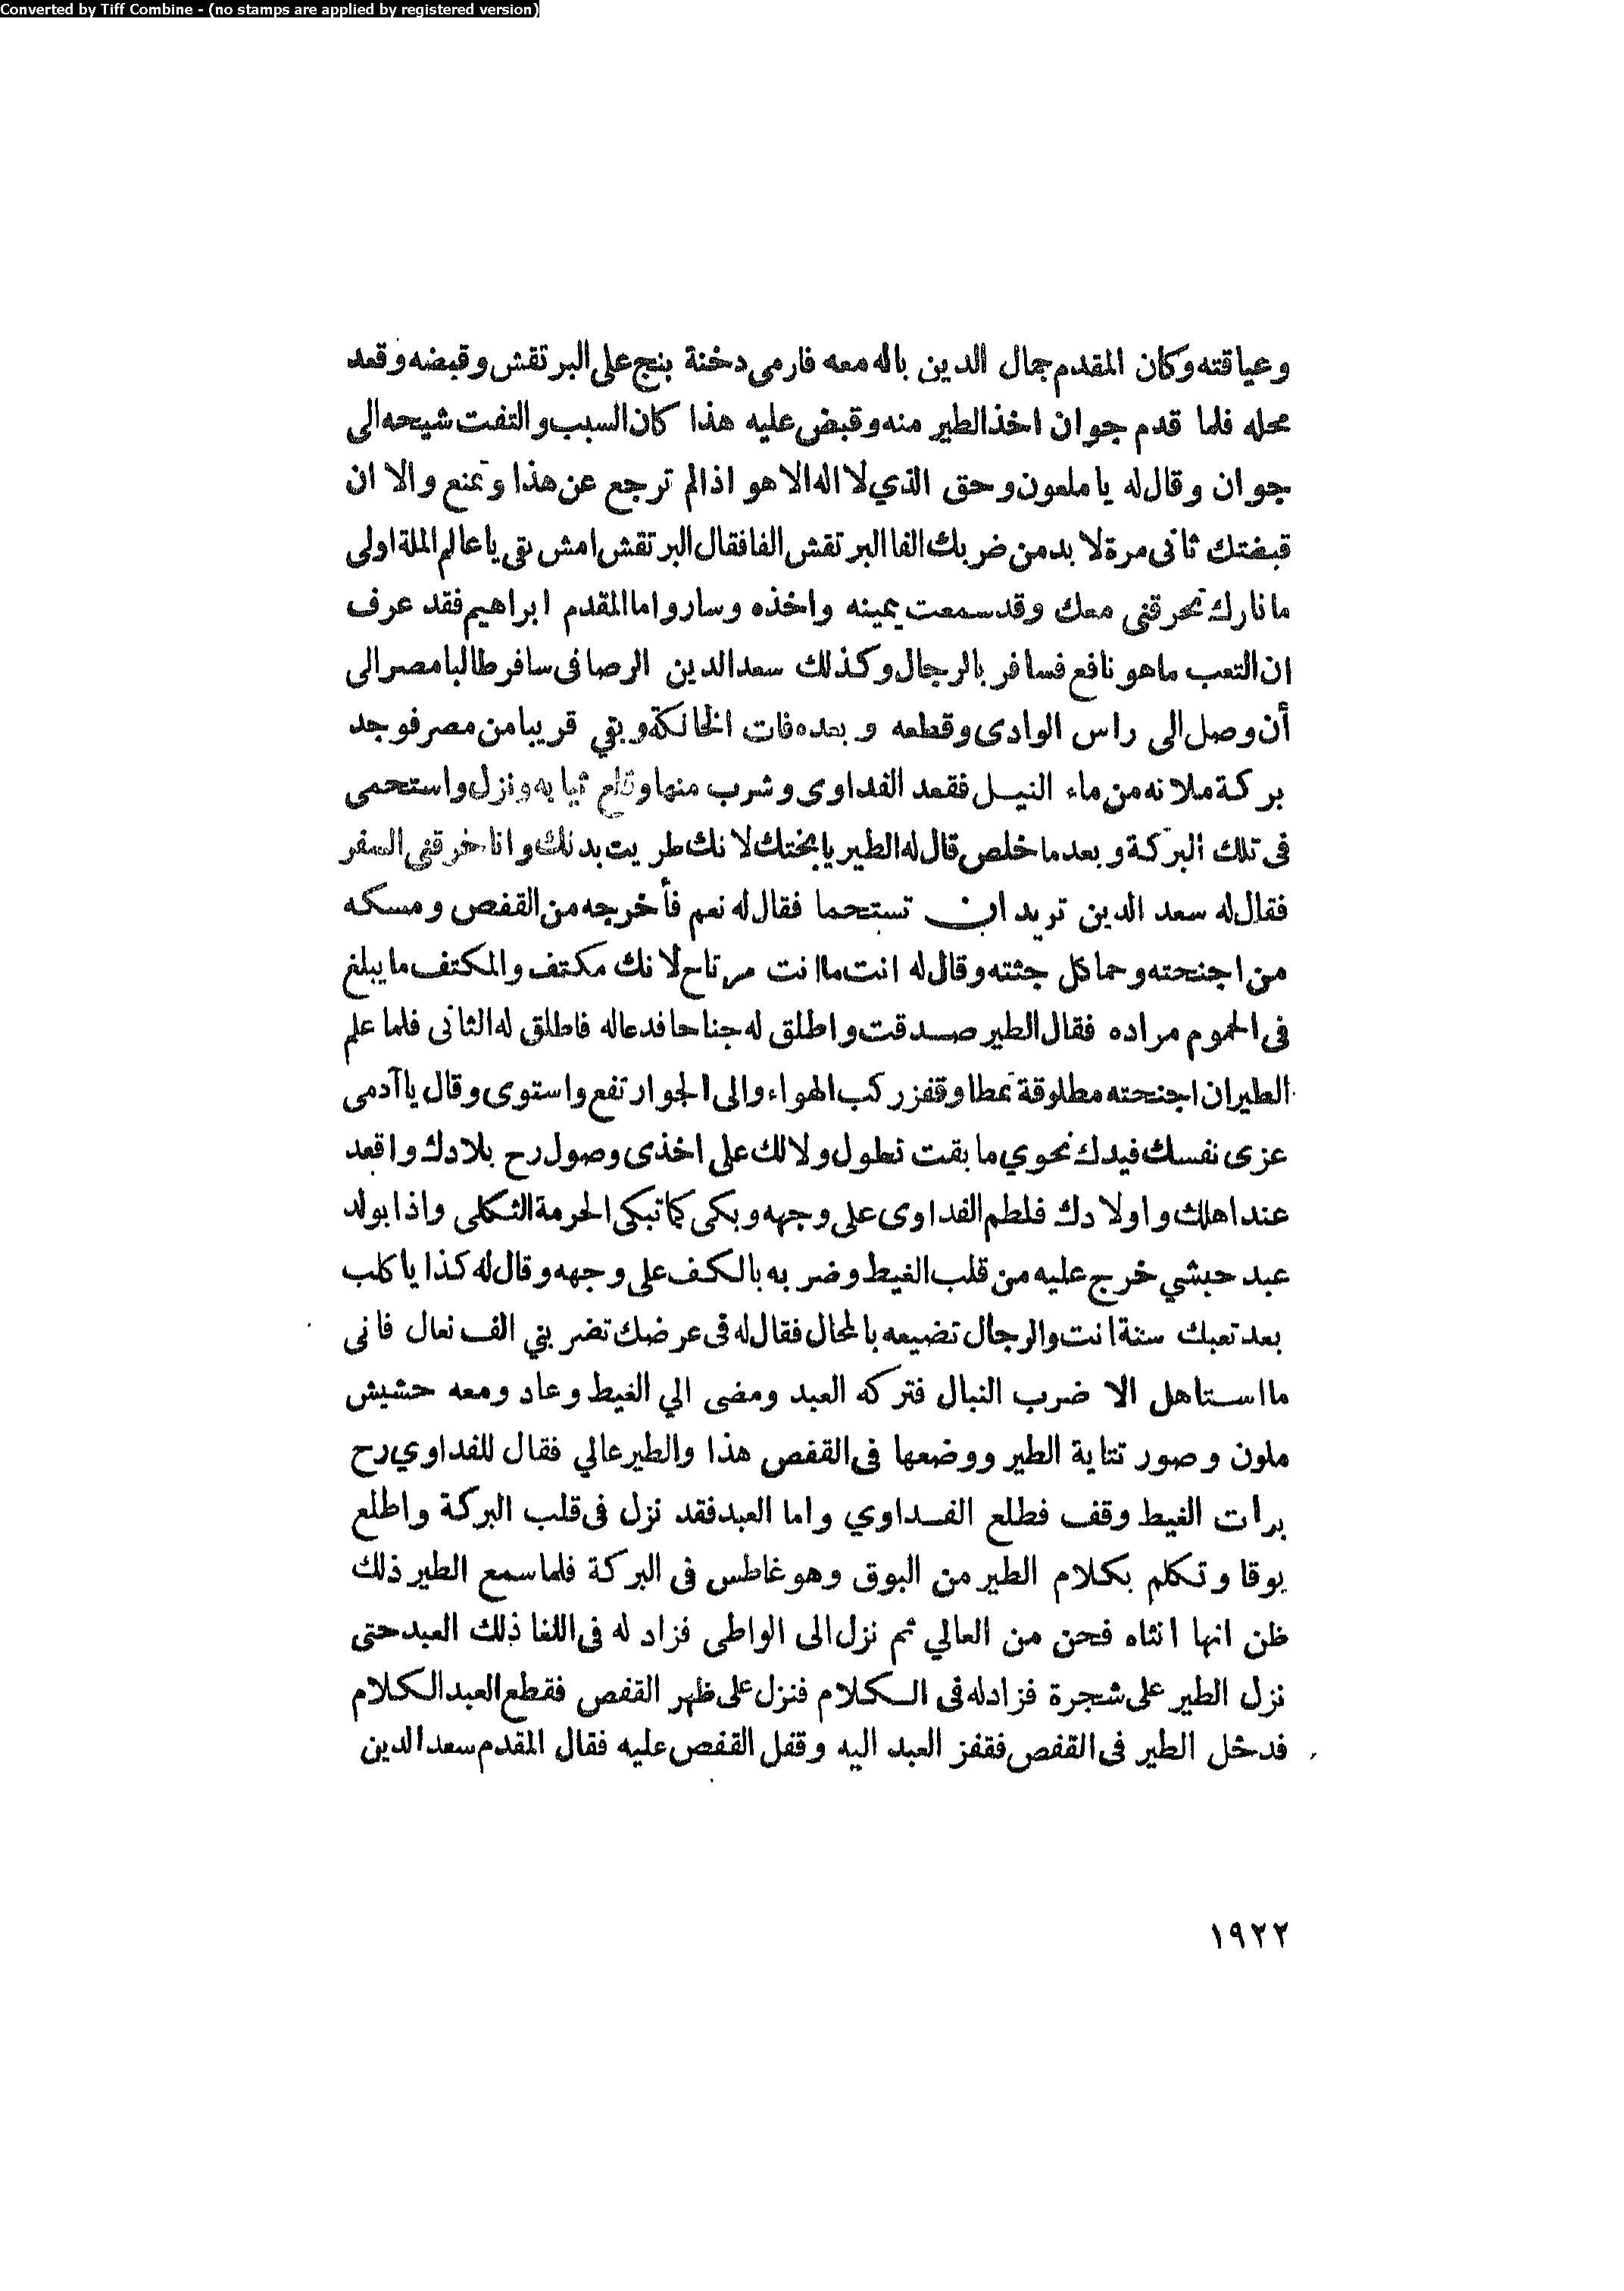 Converted by Tiff Combine - (no stamps are applied by registered version)
وعياقته وكان المقدم جمال الدين باله معه فارمى دخنة بنج على البرتقش وقبضه وقعد
محله فلما قدم جوان اخذ الطير منه وقبض عليه هذا كان السبب والتفت شيحه الى
جوان وقال له يا ملعون وحق الذي لا اله الا هو اذا لم ترجع عن هذا وتمنع والا ان
قبضتك ثانى مرة لا بد من ضربك الفا البرتقش الفا فقال البرتقش امش بقى يا عالم الملة اولى
ما نارك تحرقنى معك وقد سمعت يمينه واخذه وسار واما المقدم ابراهيم فقد عرف
ان التعب ما هو نافع فسافر بالرجال وكذلك سعد الدين الرصافى سافر طالبا مصر الى
أن وصل الى راس الوادى وقطعه وبعده فات الخانكة وبقي قريبا من مصر فوجد
بركة ملانه من ماء النيل فقعد الفداوى وشرب منها وقلع ثيابه ونزل واستحمى
فى تلك البركة وبعد ما خلص قال له الطير يا بختك لانك طريت بدنك وانا خرقنى السفر
فقال له سعد الدين تريد ان تستحما فقال له نعم فأخرجه من القفص ومسكه
من اجنحته وحما كل جثته وقال له انت ما انت مرتاح لانك مكتف والمكتف ما يبلغ
فى الحموم مراده فقال الطير صدقت واطلق له جناحا فدعاله فاطلق له الثانى فلما علم
الطير ان اجنحته مطلوقة تمطا وقفز ركب الهواء والى الجو ارتفع واستوى وقال يا آدمى
عزى نفسك فيدك نحوي ما بقت تطول ولا لك على اخذى وصول رح بلادك واقعد
عند اهلك واولادك فلطم الفداوى على وجهه وبكى كما تبكى الحرمة الثكلى واذا بولد
عبد حبشي خرج عليه من قلب الغيط وضربه بالكف على وجهه وقال له كذا يا كلب
بعد تعبك سنة انت والرجال تضيعه بالمحال فقال له فى عرضك تضربني الف نعال فانى
ما استاهل الا ضرب النبال فتركه العبد ومضى الي الغيط وعاد ومعه حشيش
ملون وصور نتاية الطير ووضعها فى القفص هذا والطير عالي فقال للفداوي رح
برات الغيط وقف فطلع الفداوي واما العبد فقد نزل فى قلب البركة واطلع
بوقا وتكلم بكلام الطير من البوق وهو غاطس فى البركة فلما سمع الطير ذلك
ظن انها انثاه فحن من العالي ثم نزل الى الواطى فزاد له فى اللغا ذلك العبد حتى
نزل الطير على شجرة فزاد له فى الكلام فنزل على ظهر القفص فقطع العبد الكلام
فدخل الطير فى القفص فقفز العبد اليه وقفل القفص عليه فقال المقدم سعد الدين
١٩٢٢